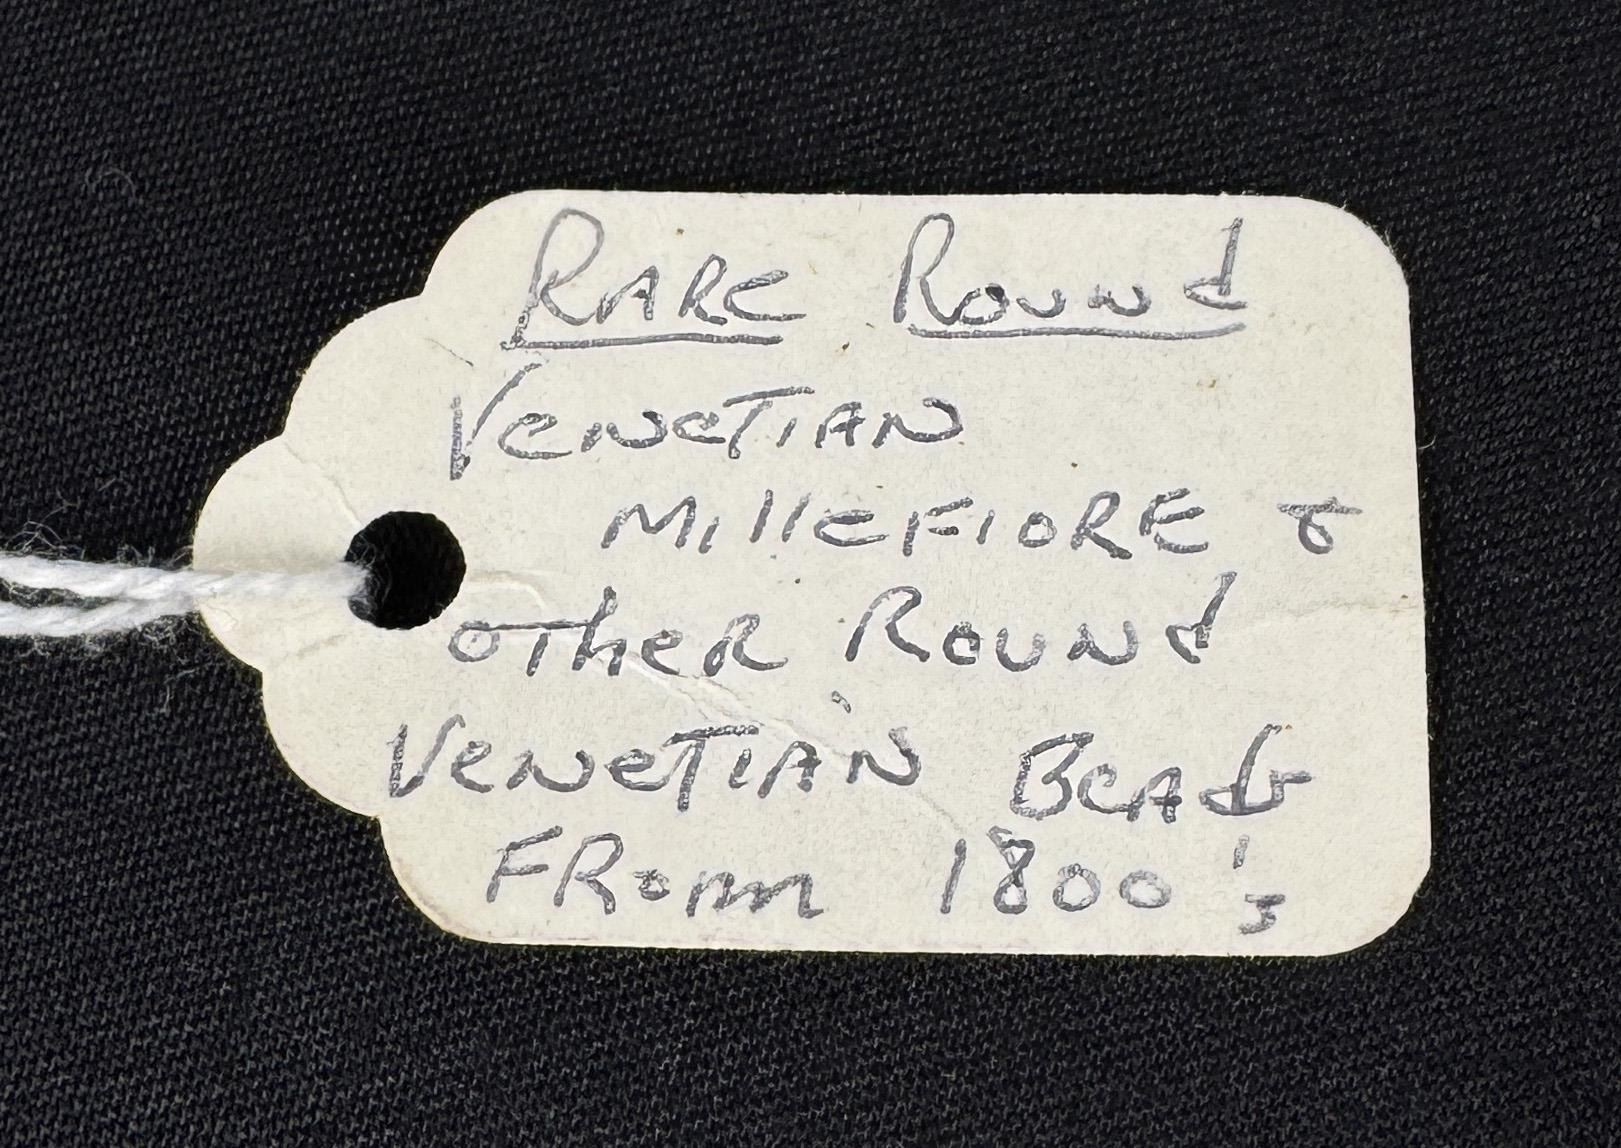 Rare Round
Venetian
Millefiore &
other Round
Venetian Beads
From 1800's